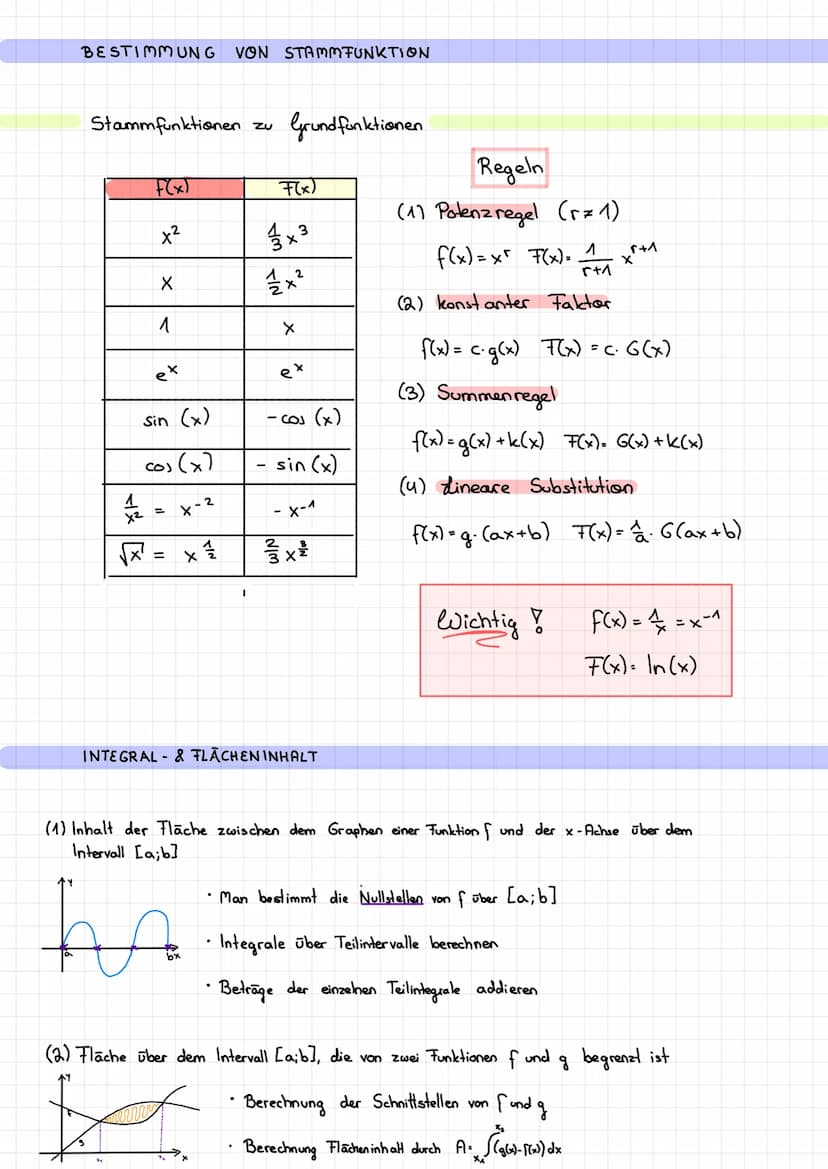 BESTIMMUNG VON STAMMFUNKTION
Stammfunktionen zu Grundfunktionen
f(x) F(x)
x² 1/3 x³
x 1/2 x²
1 x
eˣ eˣ
sin (x) - cos (x)
cos (x) - sin (x)
1/x² = x⁻² - x⁻¹
√x = x^(1/2) 2/3 x^(3/2)
Regeln
(1) Potenzregel (r ≠ 1)
f(x) = xʳ F(x) = 1/(r+1) x^(r+1)
(2) konstanter Faktor
f(x) = c · g(x) F(x) = c · G(x)
(3) Summenregel
f(x) = g(x) + k(x) F(x) = G(x) + K(x)
(4) Lineare Substitution
f(x) = g · (ax+b) F(x) = 1/a · G(ax+b)
Wichtig ! f(x) = 1/x = x⁻¹
F(x) = ln(x)
INTEGRAL - & FLÄCHENINHALT
(1) Inhalt der Fläche zwischen dem Graphen einer Funktion f und der x-Achse über dem
Intervall [a;b]
y
a
b x
· Man bestimmt die Nullstellen von f über [a;b]
· Integrale über Teilintervalle berechnen
· Beträge der einzelnen Teilintegrale addieren
(2) Fläche über dem Intervall [a;b], die von zwei Funktionen f und g begrenzt ist
y
f
g
x
· Berechnung der Schnittstellen von f und g
· Berechnung Flächeninhalt durch A = ∫ₓ₁ˣ² (g(x)-f(x)) dx